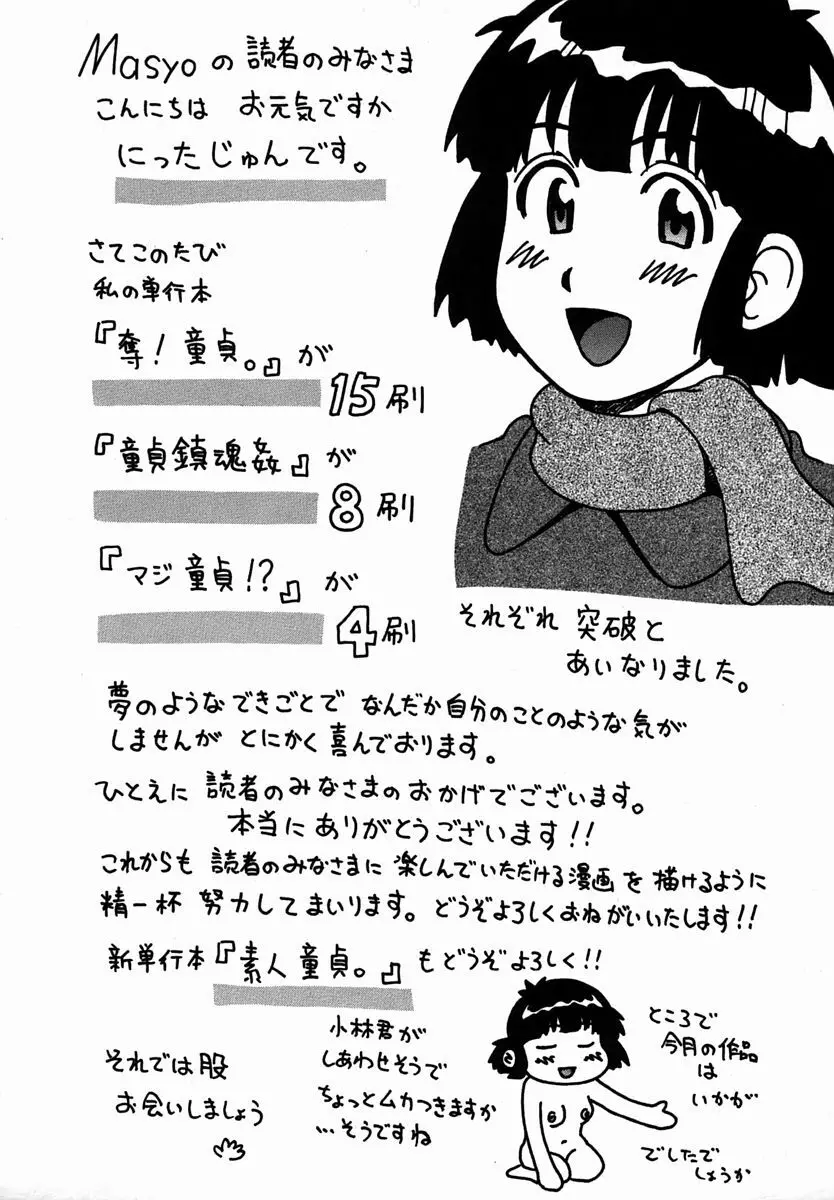 Masyoの読者のみなさま
こんにちは お元気ですか
にったじゅんです。
さてこのたび
私の単行本
『奪!童貞。』が
15刷
『童貞鎮魂姦』が
8刷
『マジ童貞!?』が
4刷
それぞれ 突破と
あいなりました。
夢のようなできごとで なんだか自分のことのような気が
しませんが とにかく喜んでおります。
ひとえに 読者のみなさまのおかげでございます。
本当にありがとうございます!!
これからも 読者のみなさまに 楽しんでいただける漫画を 描けるように
精一杯 努力してまいります。どうぞよろしくおねがいいたします!!
新単行本『素人童貞。』もどうぞよろしく!!
それでは股
お会いしましょう
小林君が
しあわせそうで
ちょっとムカつきますか
…そうですね
ところで
今月の作品
は
いかが
でしたで
しょうか